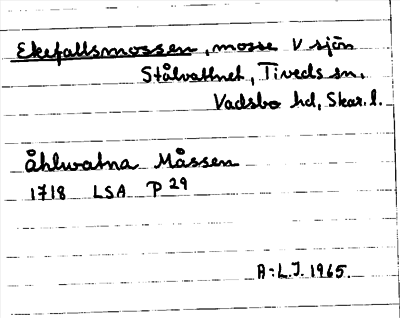 Ekefallsmossen, mosse V sjön
Stålvattnet, Tiveds sn,
Vadsbo hd, Skar. l.
Åhlwatna Måssen
1718 LSA P 29
A:L.J. 1965.